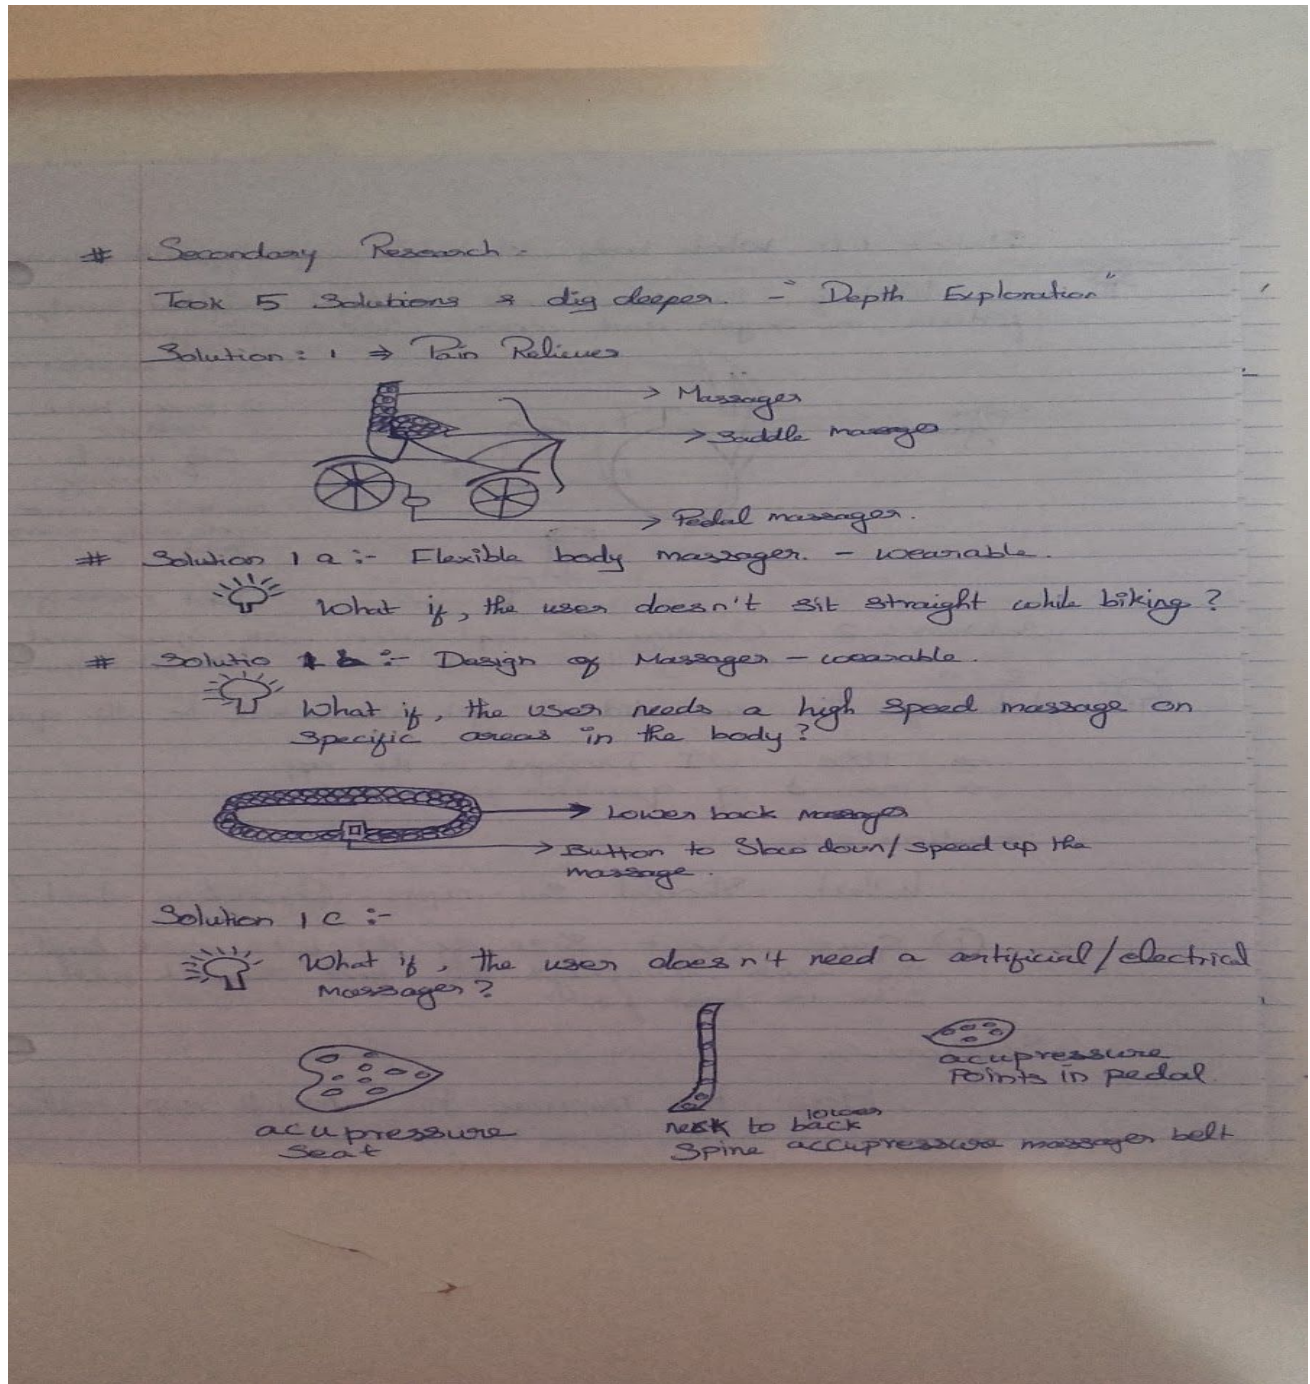 # Secondary Research :-
Took 5 Solutions & dig deeper. - "Depth Exploration"
Solution : 1 ⇒ Pain Reliever
Massager
Saddle massager
Pedal massager.
# Solution 1 a :- Flexible body massager. - wearable.
What if, the user doesn't sit straight while biking ?
# Solutio 1 b :- Design of Massager - wearable.
What if, the user needs a high speed massage on
specific areas in the body ?
Lower back massager
Button to Slow down/speed up the
massage.
Solution 1 c :-
What if, the user doesn't need a artificial/electrical
massager ?
acupressure
Points in pedal
acupressure
Seat
neck to lower back
Spine accupressure massager belt